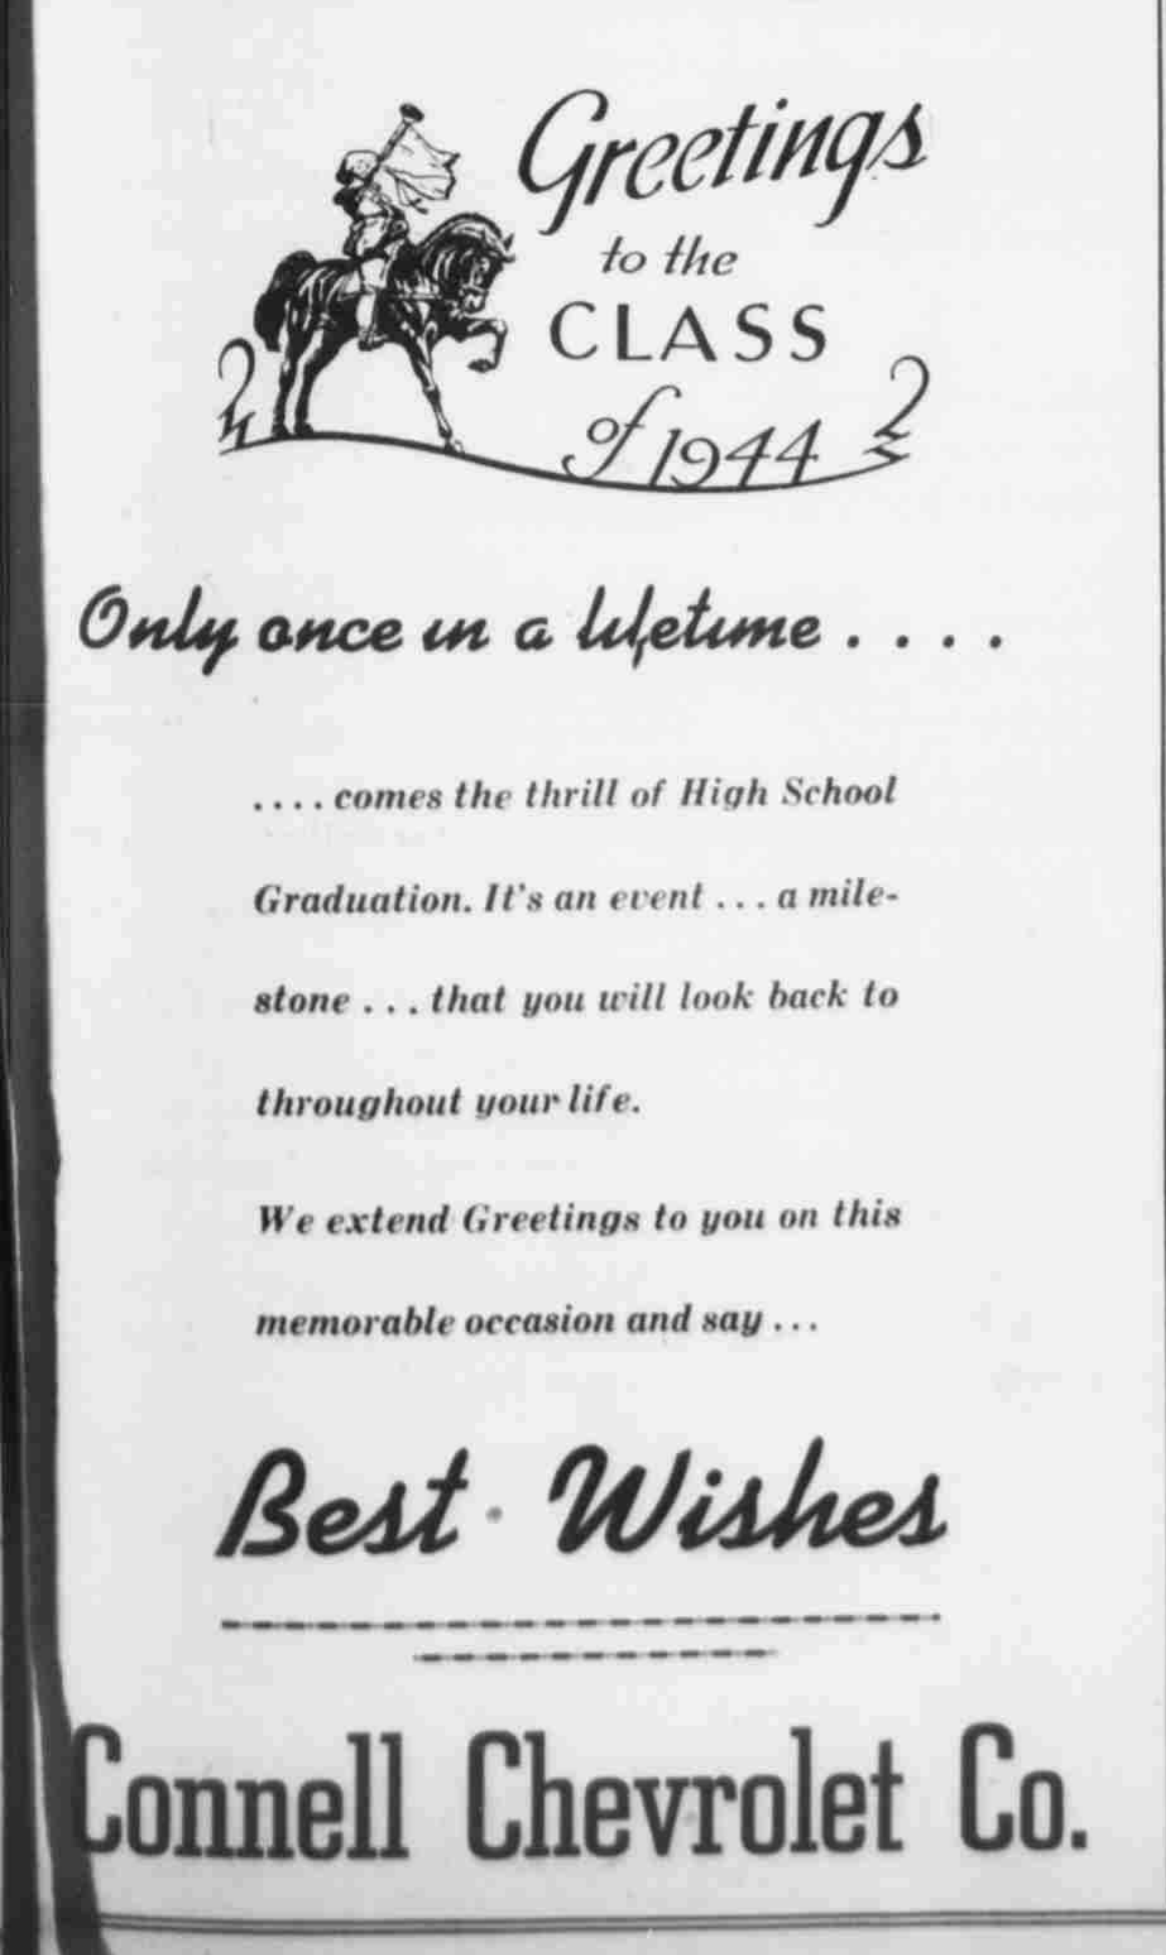 Greetings
to the
CLASS
of 1944
Only once in a lifetime . . . .
. . . . comes the thrill of High School
Graduation. It's an event . . . a mile-
stone . . . that you will look back to
throughout your life.
We extend Greetings to you on this
memorable occasion and say . . .
Best Wishes
Connell Chevrolet Co.